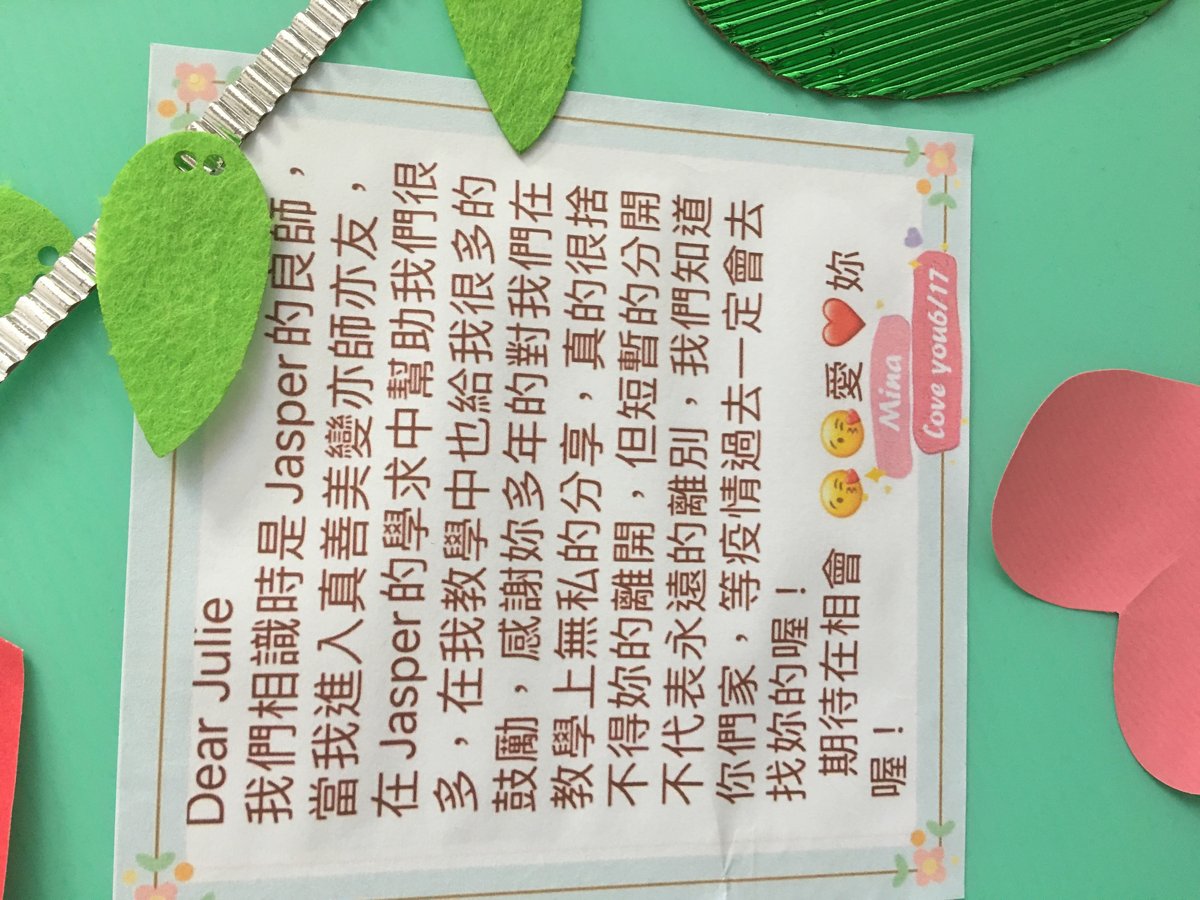 Dear Julie
我們相識時是 Jasper 的良師，
當我進入真善美變亦師亦友，
在 Jasper 的學求中幫助我們很
多，在我教學中也給我很多的
鼓勵，感謝妳多年的對我們在
教學上無私的分享，真的很捨
不得妳的離開，但短暫的分開
不代表永遠的離別，我們知道
你們家，等疫情過去一定會去
找妳的喔！
期待在相會 😘😘愛❤️妳
喔！
Mina
Love you6/17